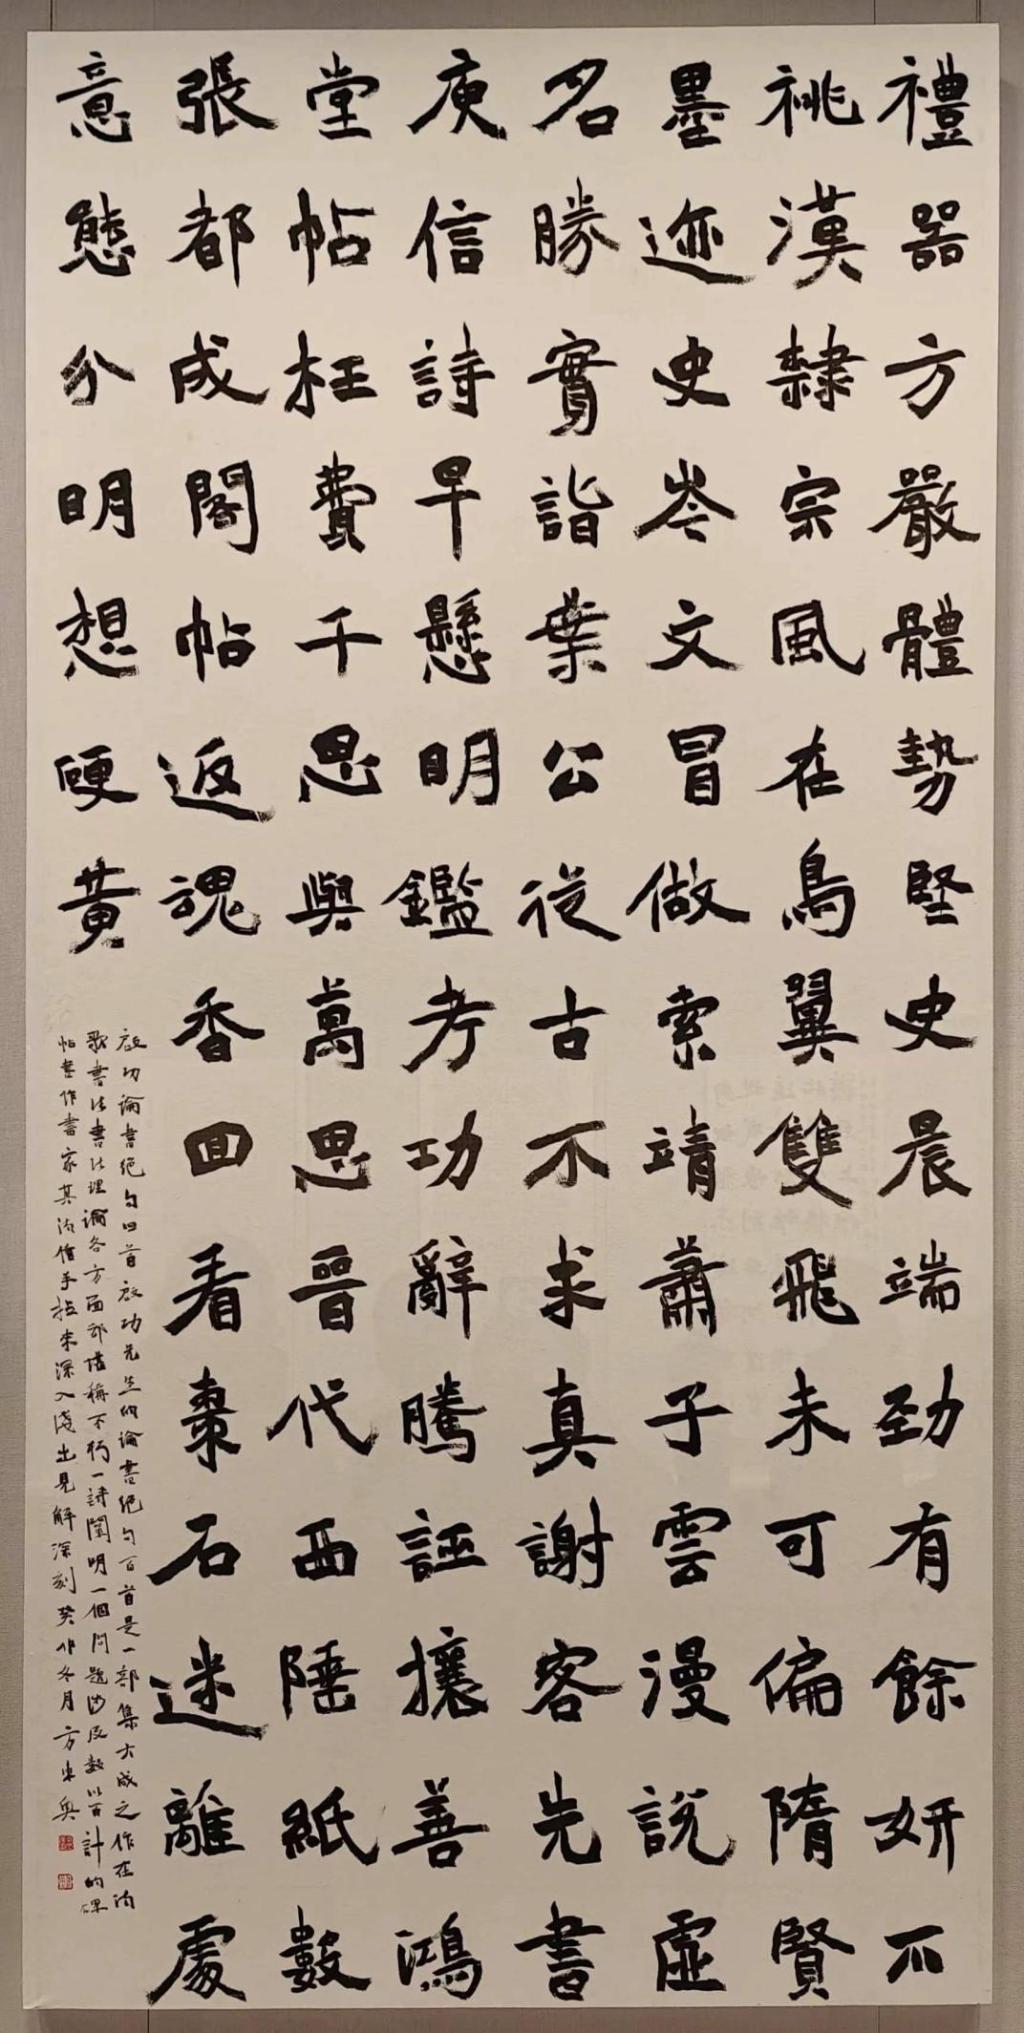 禮器方嚴體勢堅史晨端勁有餘妍不
祧漢隸宗風在鳥翼雙飛未可偏隋賢
墨迹史岑文冒做索靖蕭子雲漫說虛
名勝實詣葉公從古不求真謝客先書
庾信詩早懸明鑑考功辭騰誣攘善鴻
堂帖枉費千思與萬思晉代西陲紙數
張都成閣帖返魂香回看棗石迷離處
意態分明想硬黃
啟功論書絕句四首啟功先生的論書絕句百首是一部集大成之作在詩
歌書法書法理論各方面都堪稱不朽一詩闡明一個問題涉及數以百計的碑
帖書作書家其詩信手拈來深入淺出見解深刻癸卯冬月方東奧